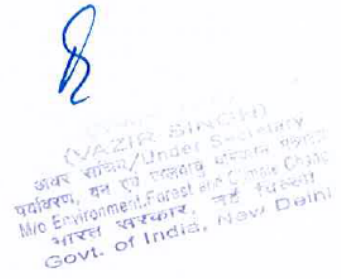 (VAZIR SINGH)
अवर सचिव/Under Secretary
पर्यावरण, वन एवं जलवायु
M/o Environment, Forest and Climate Chang
भारत सरकार, नई दिल्ली
Govt. of India, New Delhi